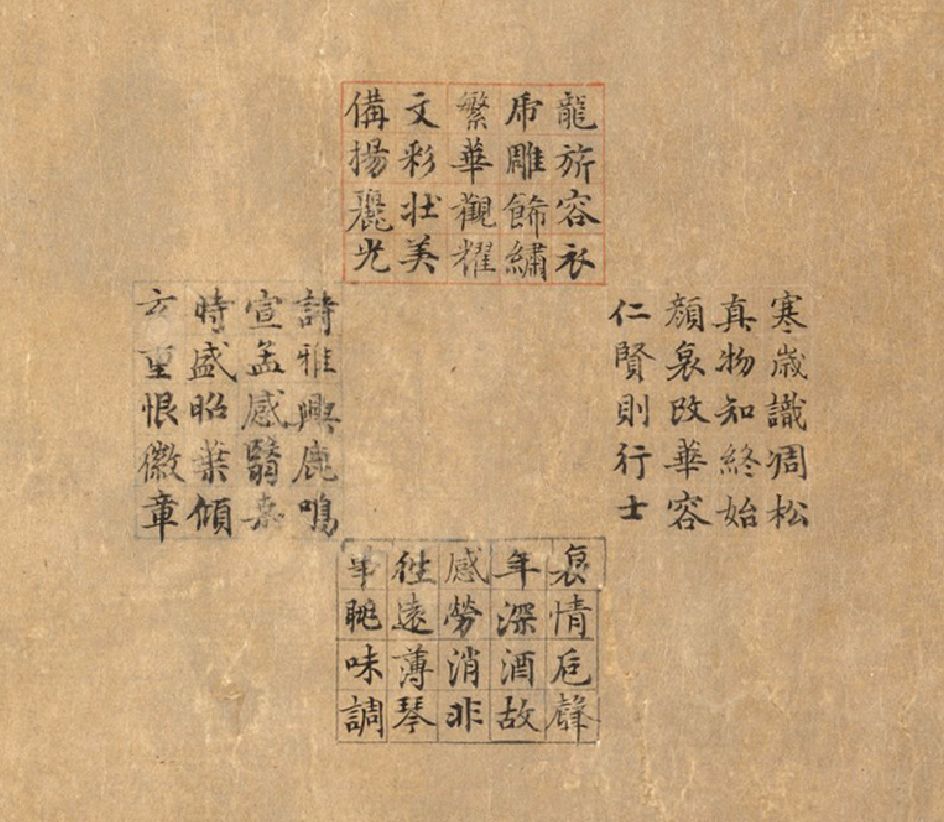 龍旂容衣
虎雕飾繡
繁華觀耀
文彩壯美
備揚麗光
寒歲識凋松
真物知終始
顏喪改華容
仁賢則行士
詩雅興鹿鳴
宣孟感翳桑
時盛昭業傾
玄重恨徽章
哀情卮聲
年深酒故
感勞消非
往遠薄琴
眺味調